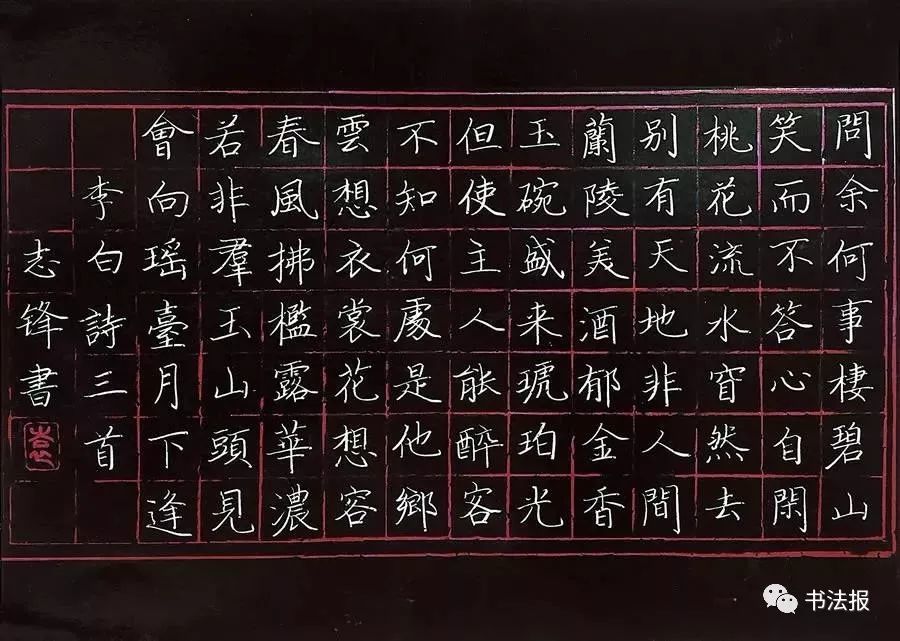 問余何事棲碧山
笑而不答心自閑
桃花流水窅然去
别有天地非人間
蘭陵美酒郁金香
玉碗盛来琥珀光
但使主人能醉客
不知何處是他鄉
雲想衣裳花想容
春風拂檻露華濃
若非羣玉山頭見
會向瑶臺月下逢
李白詩三首
志锋書
书法报